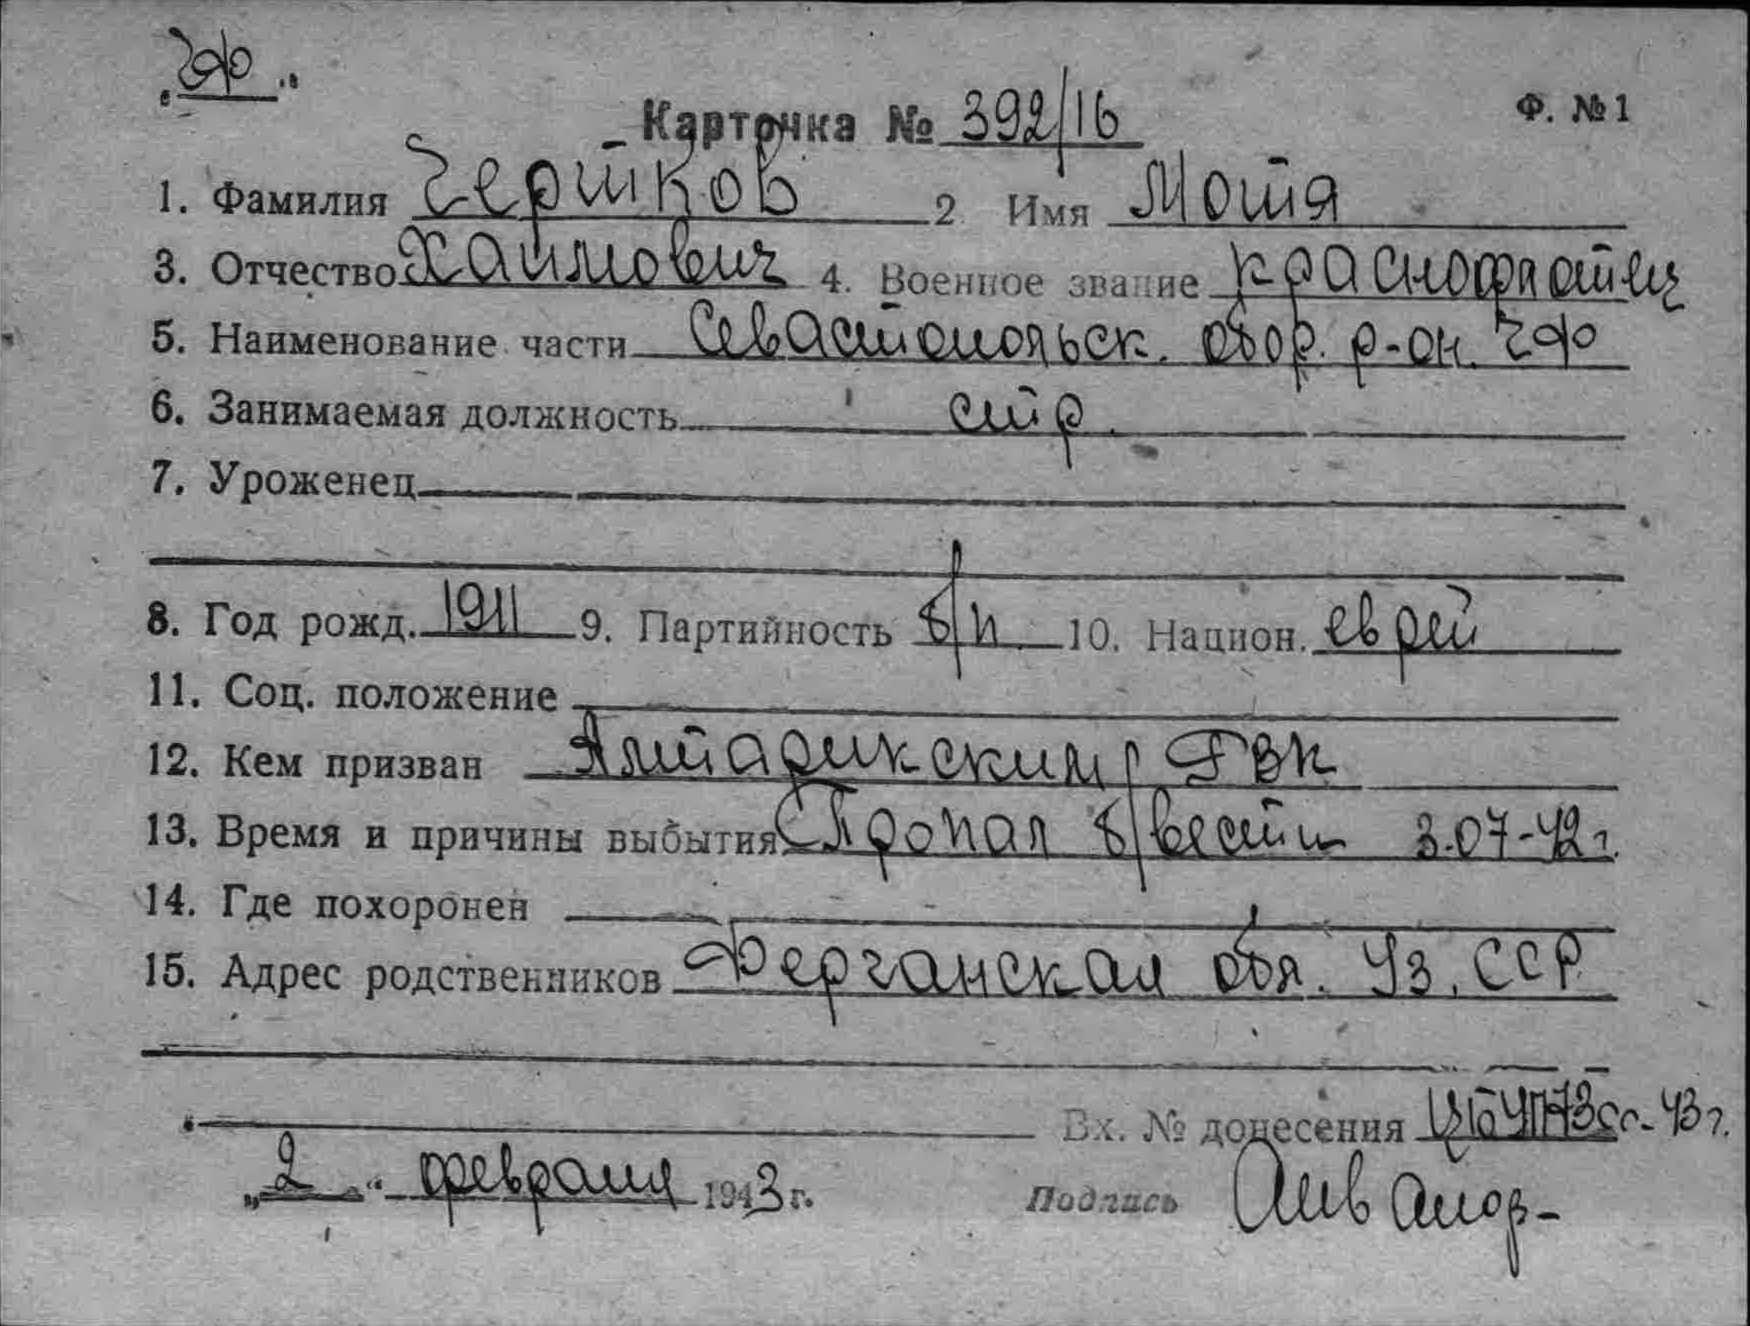 „ЧФ"
Карточка № 392/16 Ф. № 1
1. Фамилия Чертков 2 Имя Мотя
3. Отчество Хаимович 4. Военное звание краснофлотец
5. Наименование части Севастопольск. обор. р-он. ЧФ
6. Занимаемая должность стр.
7. Уроженец
8. Год рожд. 1911 9. Партийность б/п 10. Национ. еврей
11. Соц. положение
12. Кем призван Алтарикским РВК
13. Время и причины выбытия Пропал б/вести 3.07-42 г.
14. Где похоронен
15. Адрес родственников Ферганская обл. Уз. ССР
Вх. № донесения 43 г.
„2" февраля 1943 г. Подпись